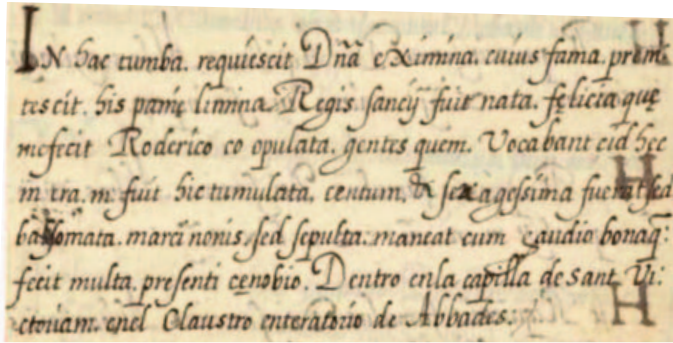 IN hac tumba. requiescit Dñã eXimina. cuius fama. prem
tescit. his pamę limina. Regis sancÿ fuit nata. fęlicia quę
mefecit Roderico co opulata. gentes quem. Vocabant cid hec
m tra. m fuit hic tumulata. centum. & sexagessima fuerat sed
balsomata. marci nonis, sed sepulta: maneat cum gaudio bonaq:
fecit multa. presenti cenobio. Dentro enla capilla de sant Vi:
ctouiam. enel Claustro enteratorio de Abbades: